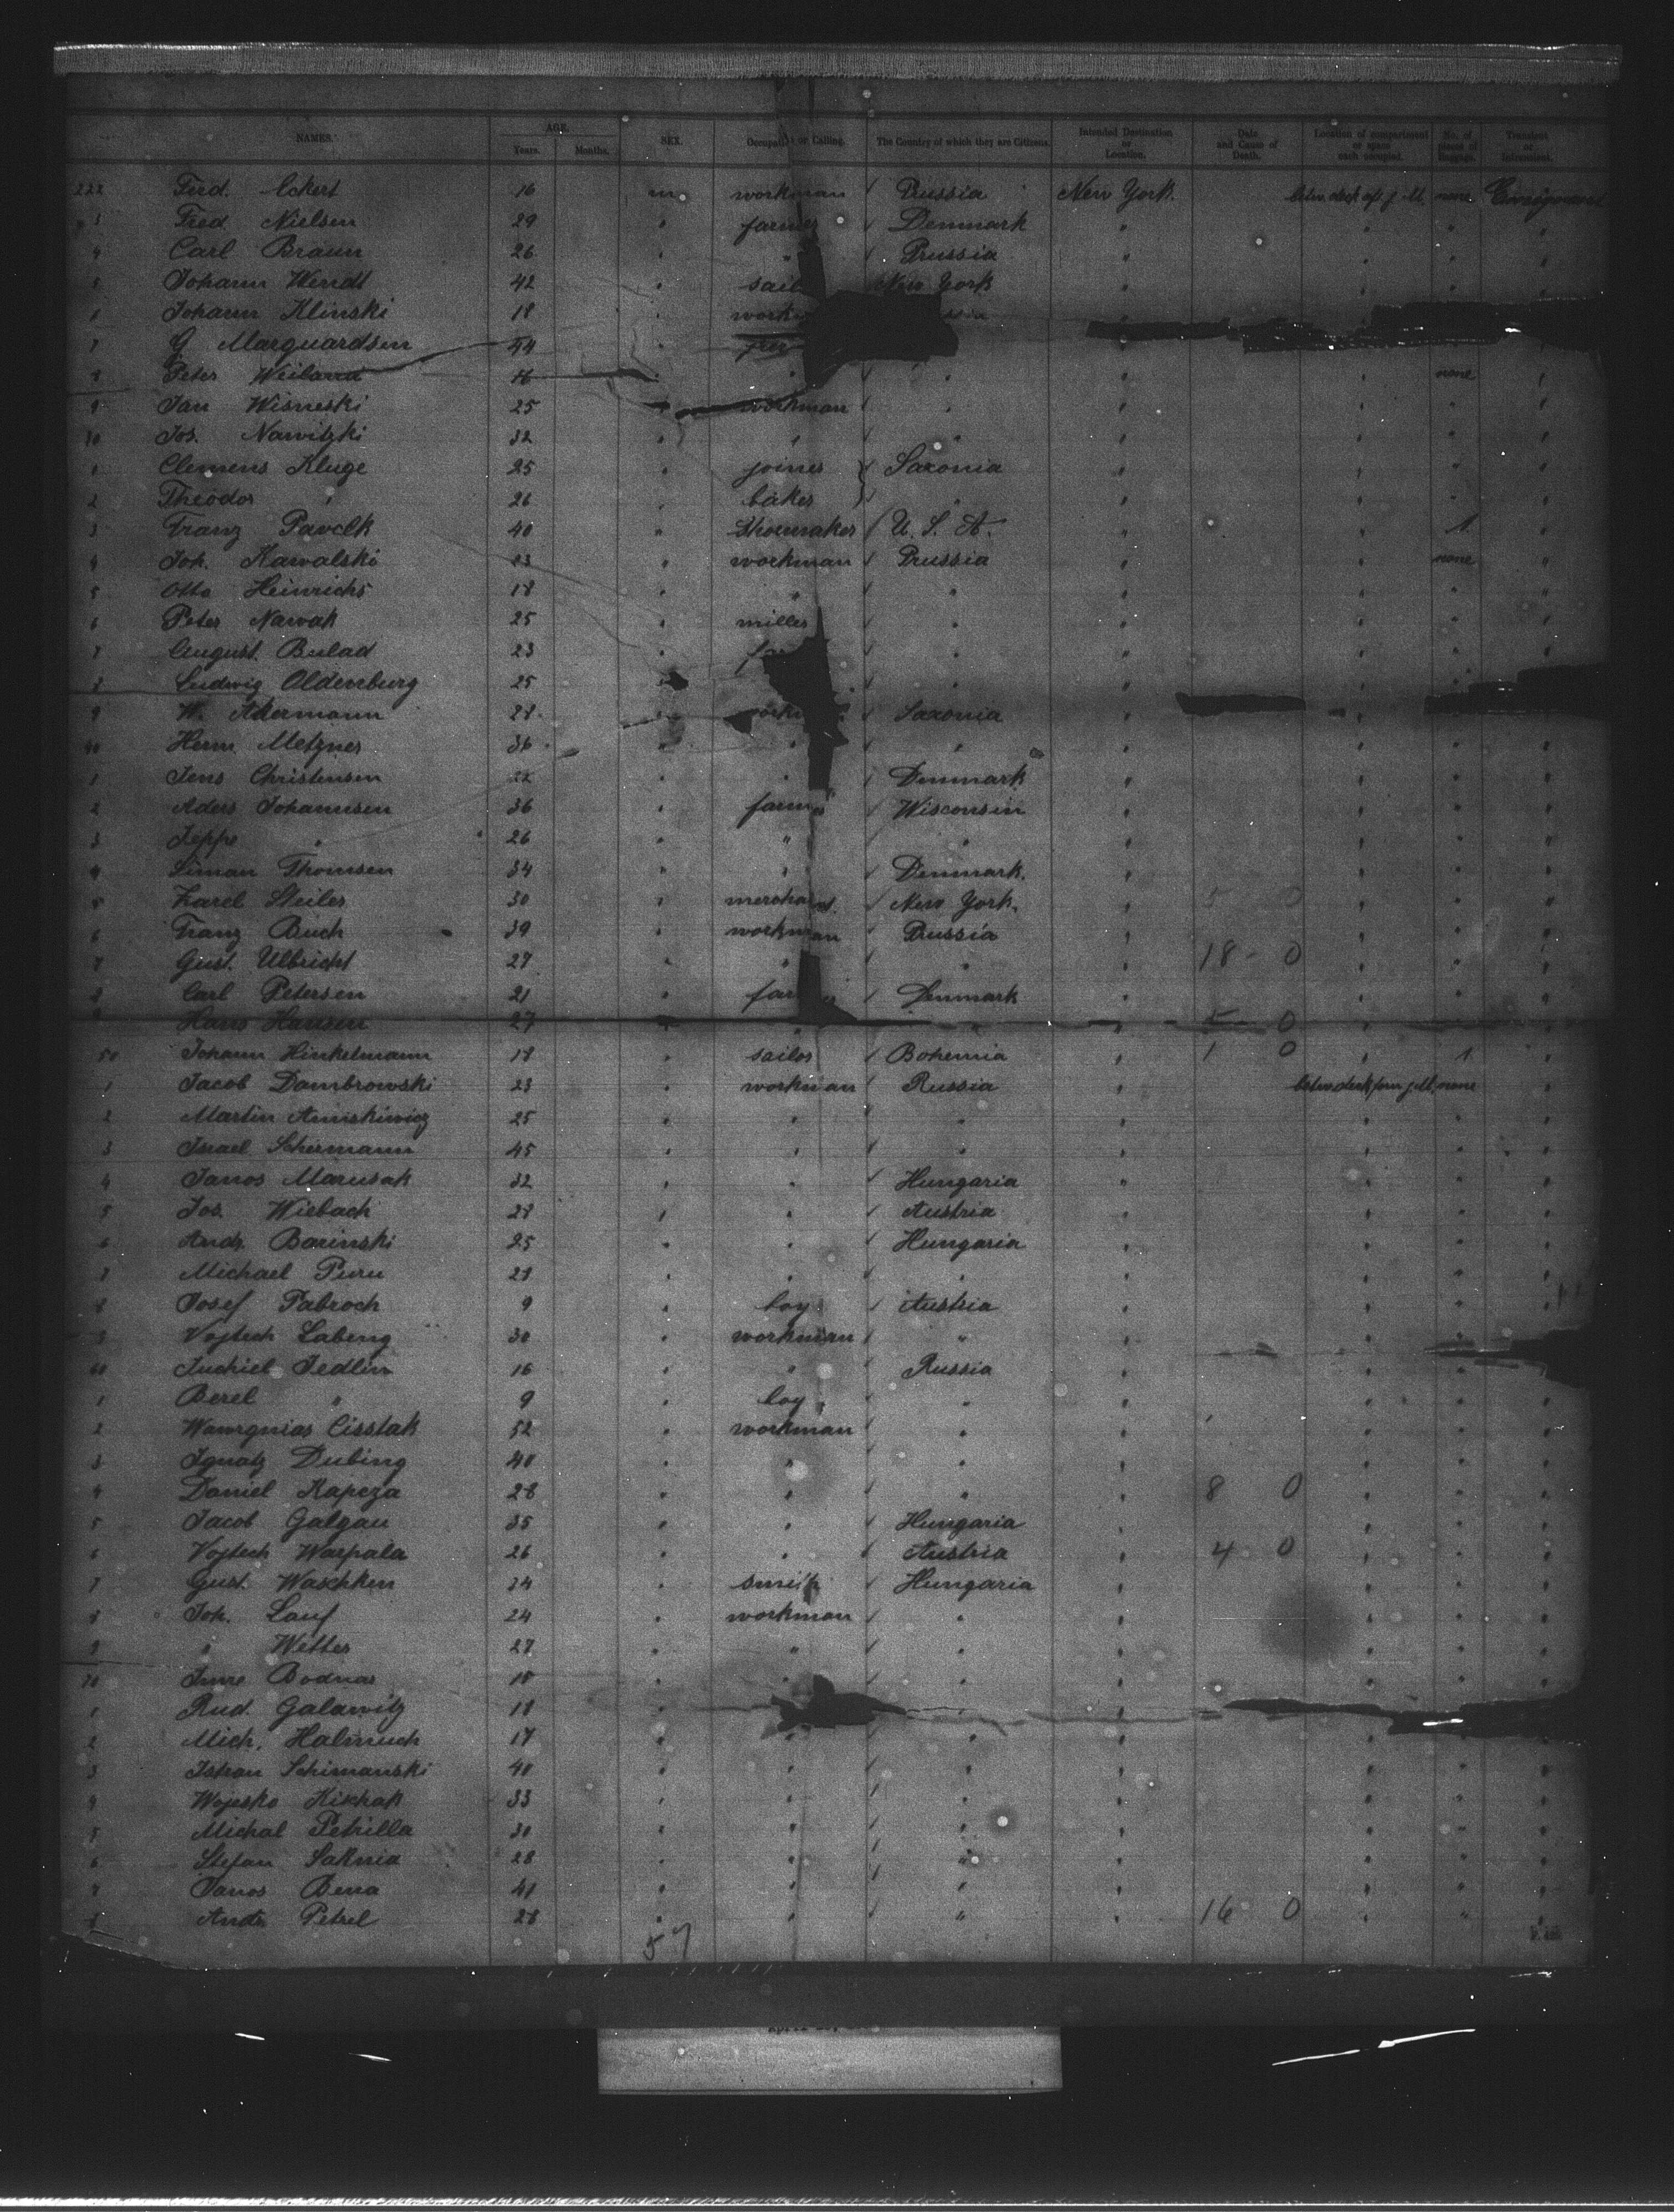 NAMES. AGE. SEX. Occupation or Calling. The Country of which they are Citizens. Intended Destination or Location. Date and Cause of Death. Location of compartment or space each occupied. No. of pieces of Baggage. Transient or Intransient.
Years. Months.
222 Ferd. Eckert 16 m workman Prussia New York. none
3 Fred. Nielsen 29 " farmer Denmark " " " "
4 Carl Braun 26 " " Prussia " " " "
5 Johann Wendt 42 " sail New York "
6 Johann Klinski 18 " work ssia
7 G Marquardsen 54 "
8 Peter Weiland " " " " none "
9 Jan Wisneski 25 " workman " " " " "
30 Jos. Nawitzki 32 " " " " " " "
1 Clemens Kluge 25 " joiner Saxonia " " " "
2 Theodor " 26 " baker " " " " "
3 Franz Pavelk 40 " Shoemaker U. S. A. " " 1 "
4 Joh. Kawalski 23 " workman Prussia " " none "
5 Otto Heinrichs 18 " " " " " " "
6 Peter Nawak 25 " miller " " " " "
7 August. Bulad 23 " far " " " " "
8 Ludwig Oldenburg 25 " " "
9 W. Akermann 28 work Saxonia " " " "
40 Herm. Metzner 36 " " " " " " "
1 Jens Christensen 22 " " Denmark " " " "
2 Aders Johannsen 36 " farmer Wisconsin " " " "
3 Jeppe " 26 " " " " " " "
4 Siman Thomsen 34 " " Denmark. " " " "
5 Karel Steiler 30 " merchant. New York. " 5 0 " " "
6 Franz Buch 39 " workman Prussia " " " "
7 Gust. Ulbricht 27 " " " " 18 - 0 " " "
8 Carl Petersen 21 " farmer Denmark " " " "
9 Hans Hansen 27 " " " " 5 0 " " "
50 Johann Hinkelmann 18 " sailor Bohemia " 1 0 " 1 "
1 Jacob Dambrowski 23 " workman Russia " none "
2 Martin 25 " " " " " " "
3 Israel Schermann 45 " " " " " " "
4 Janos Marusak 32 " " Hungaria " " " "
5 Jos. Wiebach 28 " " Austria " " " "
6 Andr. Barinski 25 " " Hungaria " " " "
7 Michael Puru " " " " " " "
8 Josef Pabroch 9 " boy Austria " " " "
9 Vojtech Labeng 30 " workman " " " " "
60 Juchiel Jedlin 16 " " Russia " " " "
1 Berel " 9 " boy " " " " "
2 Cisslak 52 " workman " " " " "
3 Ignatz Dubing 40 " " " " " " "
4 Daniel Kapcza 28 " " " " 8 0 " " "
5 Jacob Galgau 35 " " Hungaria " " " "
6 Vojtech Warpala 26 " " Austria " 4 0 " " "
7 Gust. Waschken 24 " smith Hungaria " " " "
8 Joh. Lauf 24 " workman " " " " "
9 " Wetter 27 " " " " " " "
70 Imre Bodnar " " " " " " "
1 Rud. Galawitz 18 " " " " "
2 Mich. Halmuch 17 " " " " " " "
3 Istvan Schimanski 40 " " " " " " "
4 Wojesko Kikhak 33 " " " " " " "
5 Michal Petrilla 30 " " " " " " "
6 Stefan Saknia 28 " " " " " " "
7 Janos Bena 41 " " " " " " "
8 Andr. Petrel 28 " " " " 16 0 " " "
57